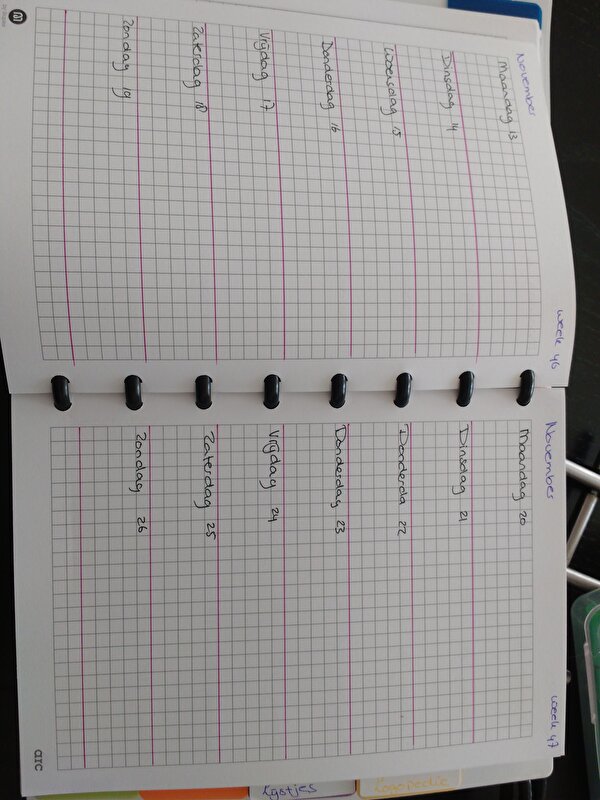 November week 46
maandag 13
Dinsdag 14
Woensdag 15
Donderdag 16
Vrijdag 17
Zaterdag 18
Zondag 19
November week 47
maandag 20
Dinsdag 21
Donderda 22
Donderdag 23
Vrijdag 24
Zaterdag 25
Zondag 26
arc
Lijstjes
Logopedie